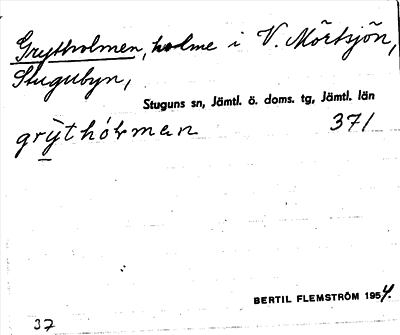 Grytholmen, holme i V. Mörtsjön,
Stugubyn,
Stuguns sn, Jämtl. ö. doms. tg, Jämtl. län
371
BERTIL FLEMSTRÖM 1954.
32